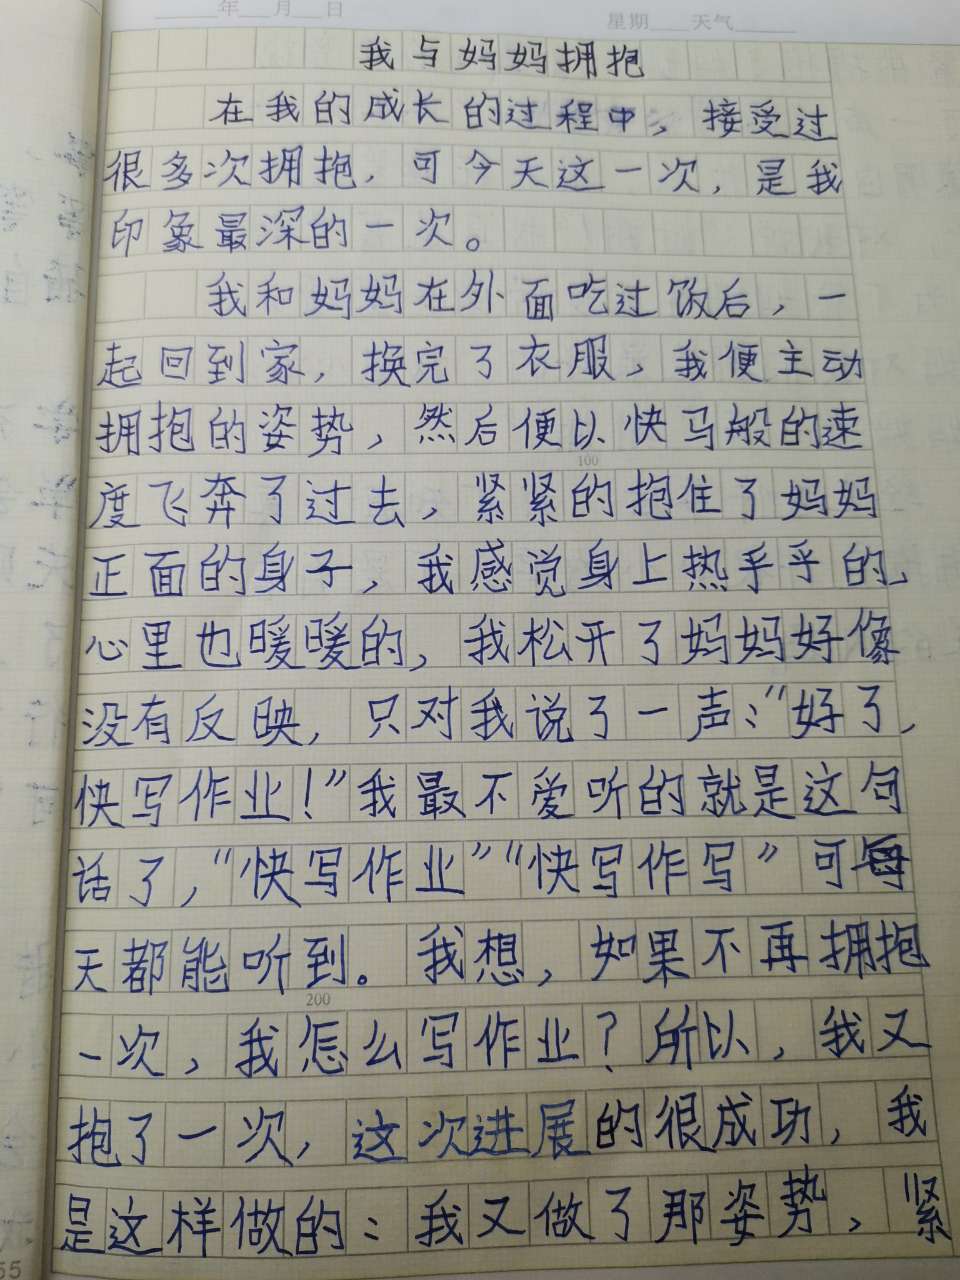 年 月 日
星期 天气
我与妈妈拥抱
在我的成长的过程中，接受过
很多次拥抱，可今天这一次，是我
印象最深的一次。
我和妈妈在外面吃过饭后，一
起回到家，换完了衣服，我便主动
拥抱的姿势，然后便以快马般的速
100
度飞奔了过去，紧紧的抱住了妈妈
正面的身子，我感觉身上热乎乎的，
心里也暖暖的，我松开了妈妈妈好像
没有反映，只对我说了一声：“好了，
快写作业！”我最不爱听的就是这句
话了，“快写作业”“快写作写”可每
天都能听到。我想，如果不再拥抱
200
一次，我怎么写作业？所以，我又
抱了一次，这次进展的很成功，我
是这样做的：我又做了那姿势，紧
55